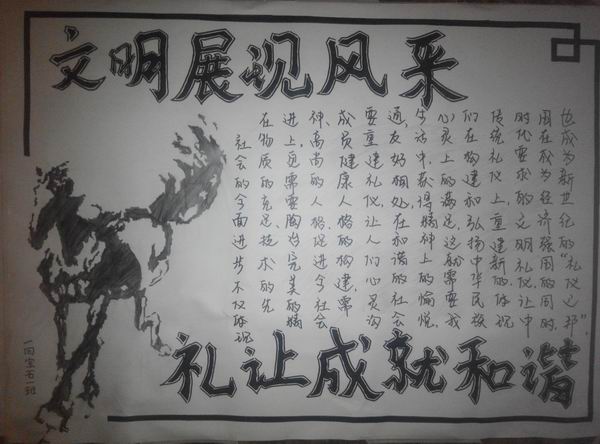 文明展现风采
社会的全面进步不仅体现
在物质的充足、技术的先
进上,更需要胸怀完美的精
神、高尚的人格。促进今社会
成员健康人格的构建,需
要重建礼仪,让人们心灵沟
通,友好相处,在和谐的社会
生活中获得精神上的愉悦,
心灵上的满足,这就需要我
们在构建和弘扬中华民族
传统礼仪上重建新的体现
时代要求的文明礼仪让中
国在成为经济强国的同时,
也成为新世纪的“礼仪之邦”.
礼让成就和谐